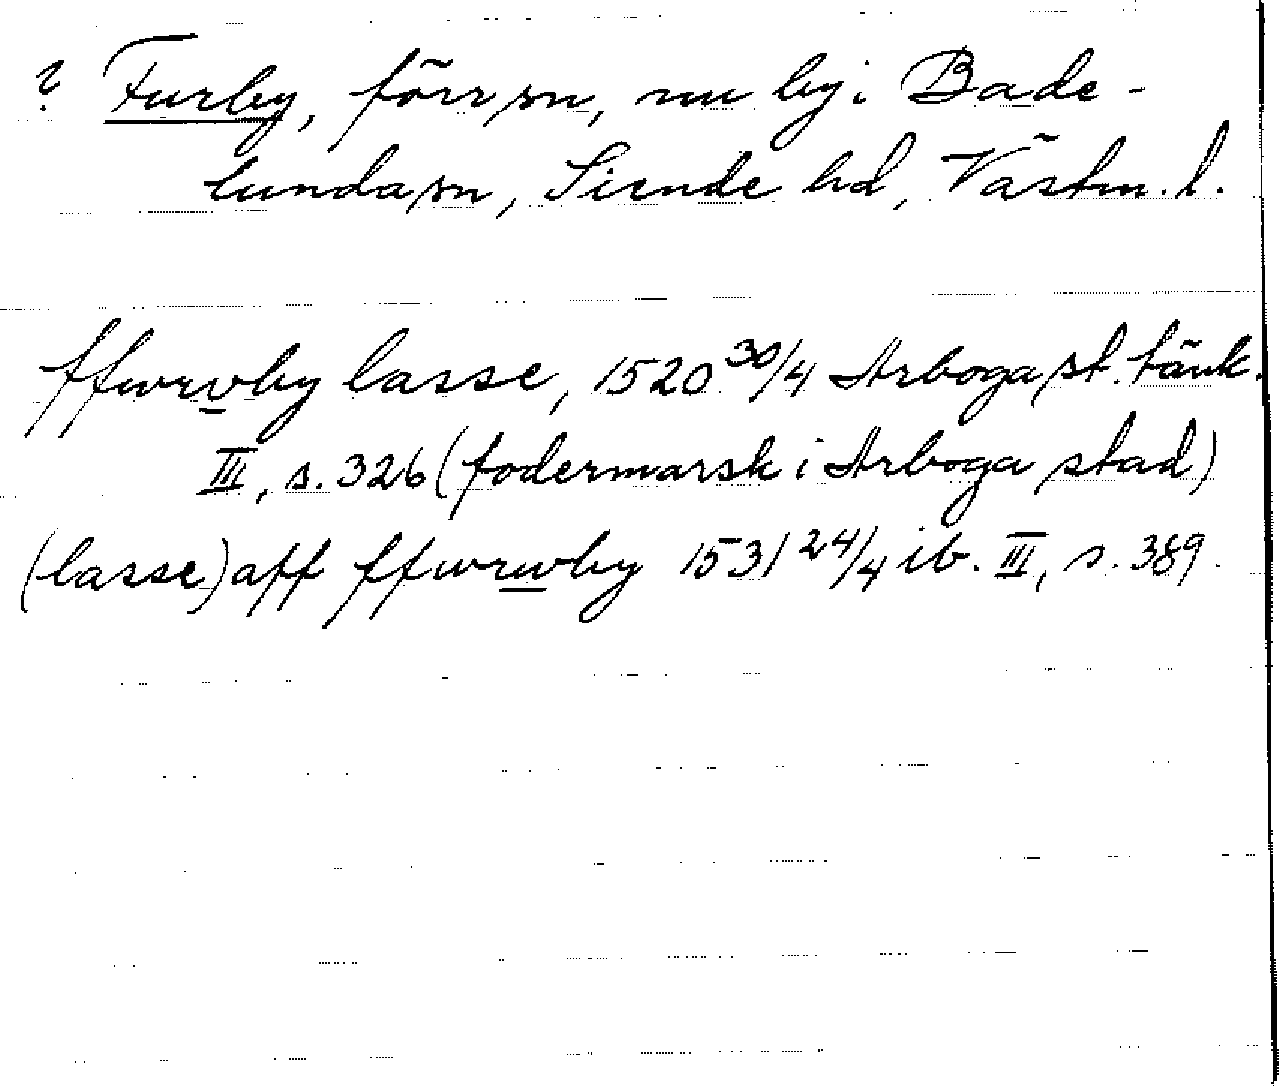 ? Furby, förr sn, nu by i Bade-
lunda sn, Siende hd, Västm. l.
ffwrvby lasse, 1520 30/4 Arboga st. tänk.
III, s. 326 (fodermarsk i Arboga stad)
(lasse) aff ffwrwby 1531 24/4 ib. III, s. 389.